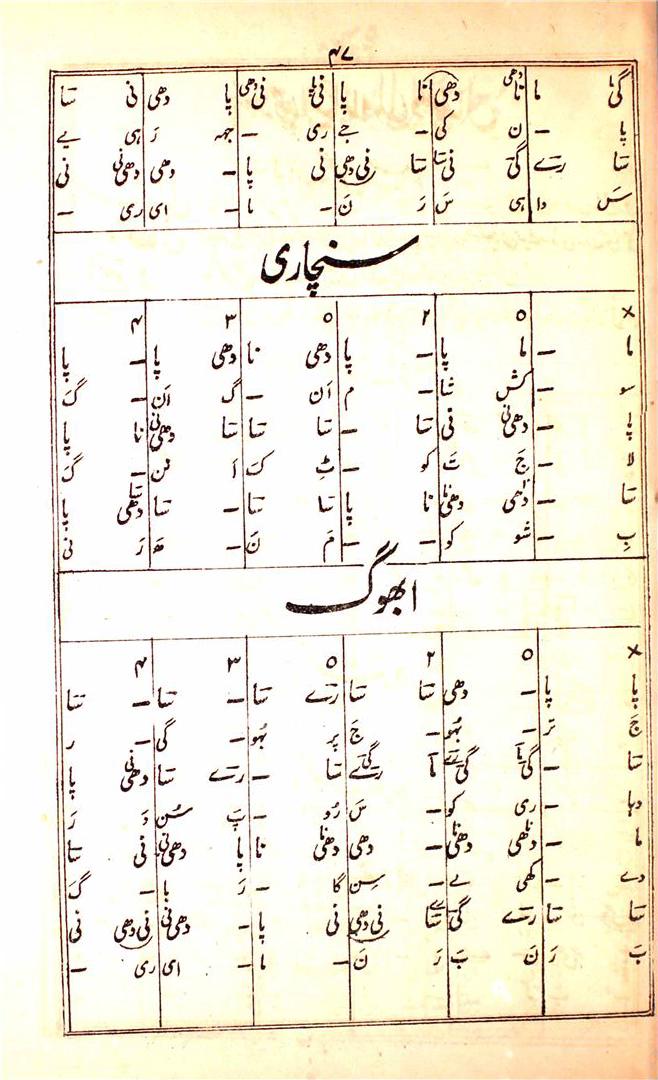 ۴۷
گا ما نا دھی دھی نا پا نی پ نی دھی پا دھی نی سا
پا – ن کی – جے ری – جہہ رَ ہی یے
سا رے گی نی سا سا نی دھی نی پا – دھی دھی نی نی
سَ دا ہی سَ رَ نَ – ما – ای ری –
سنچاری
× ٥ ۲ ٥ ۳ ۴
ما – ما پا – پا دھی نا دھی پا – پا
– کش شا – م اَن – گ اَن – گ
– دھی نی سا – سا سا سا دھی نی نا پا
لا – جَ تَ کو – ٹِ کَ اَ نن – گ
سا – دھی دھی نا نا پا سا سا – سا دھی پا
بِ – شو کو – – مَ نَ – ھَ رَ نی
ابھوگ
× ٥ ۲ ٥ ۳ ۴
پا پا – دھی سا سا رے سا – سا – سا
جَ تَر – بُہو – جَ پر بُہو – گی – ر
سا – گی گی ما رے گی سا – رے سا دھی نی پا
– ری کو – سَ رُو – پَ سُن دَ رَ
ما – دھی دھی نا – دھی دھی نا نا پا دھی نی نی
دے – کھی بے – سِن گا – رَ با – گ
سا سا رے گی سا نی دھی نی پا – دھی نی نی دھی نی
بَ رَ نَ بَ رَ نَ – ما – ای ری –